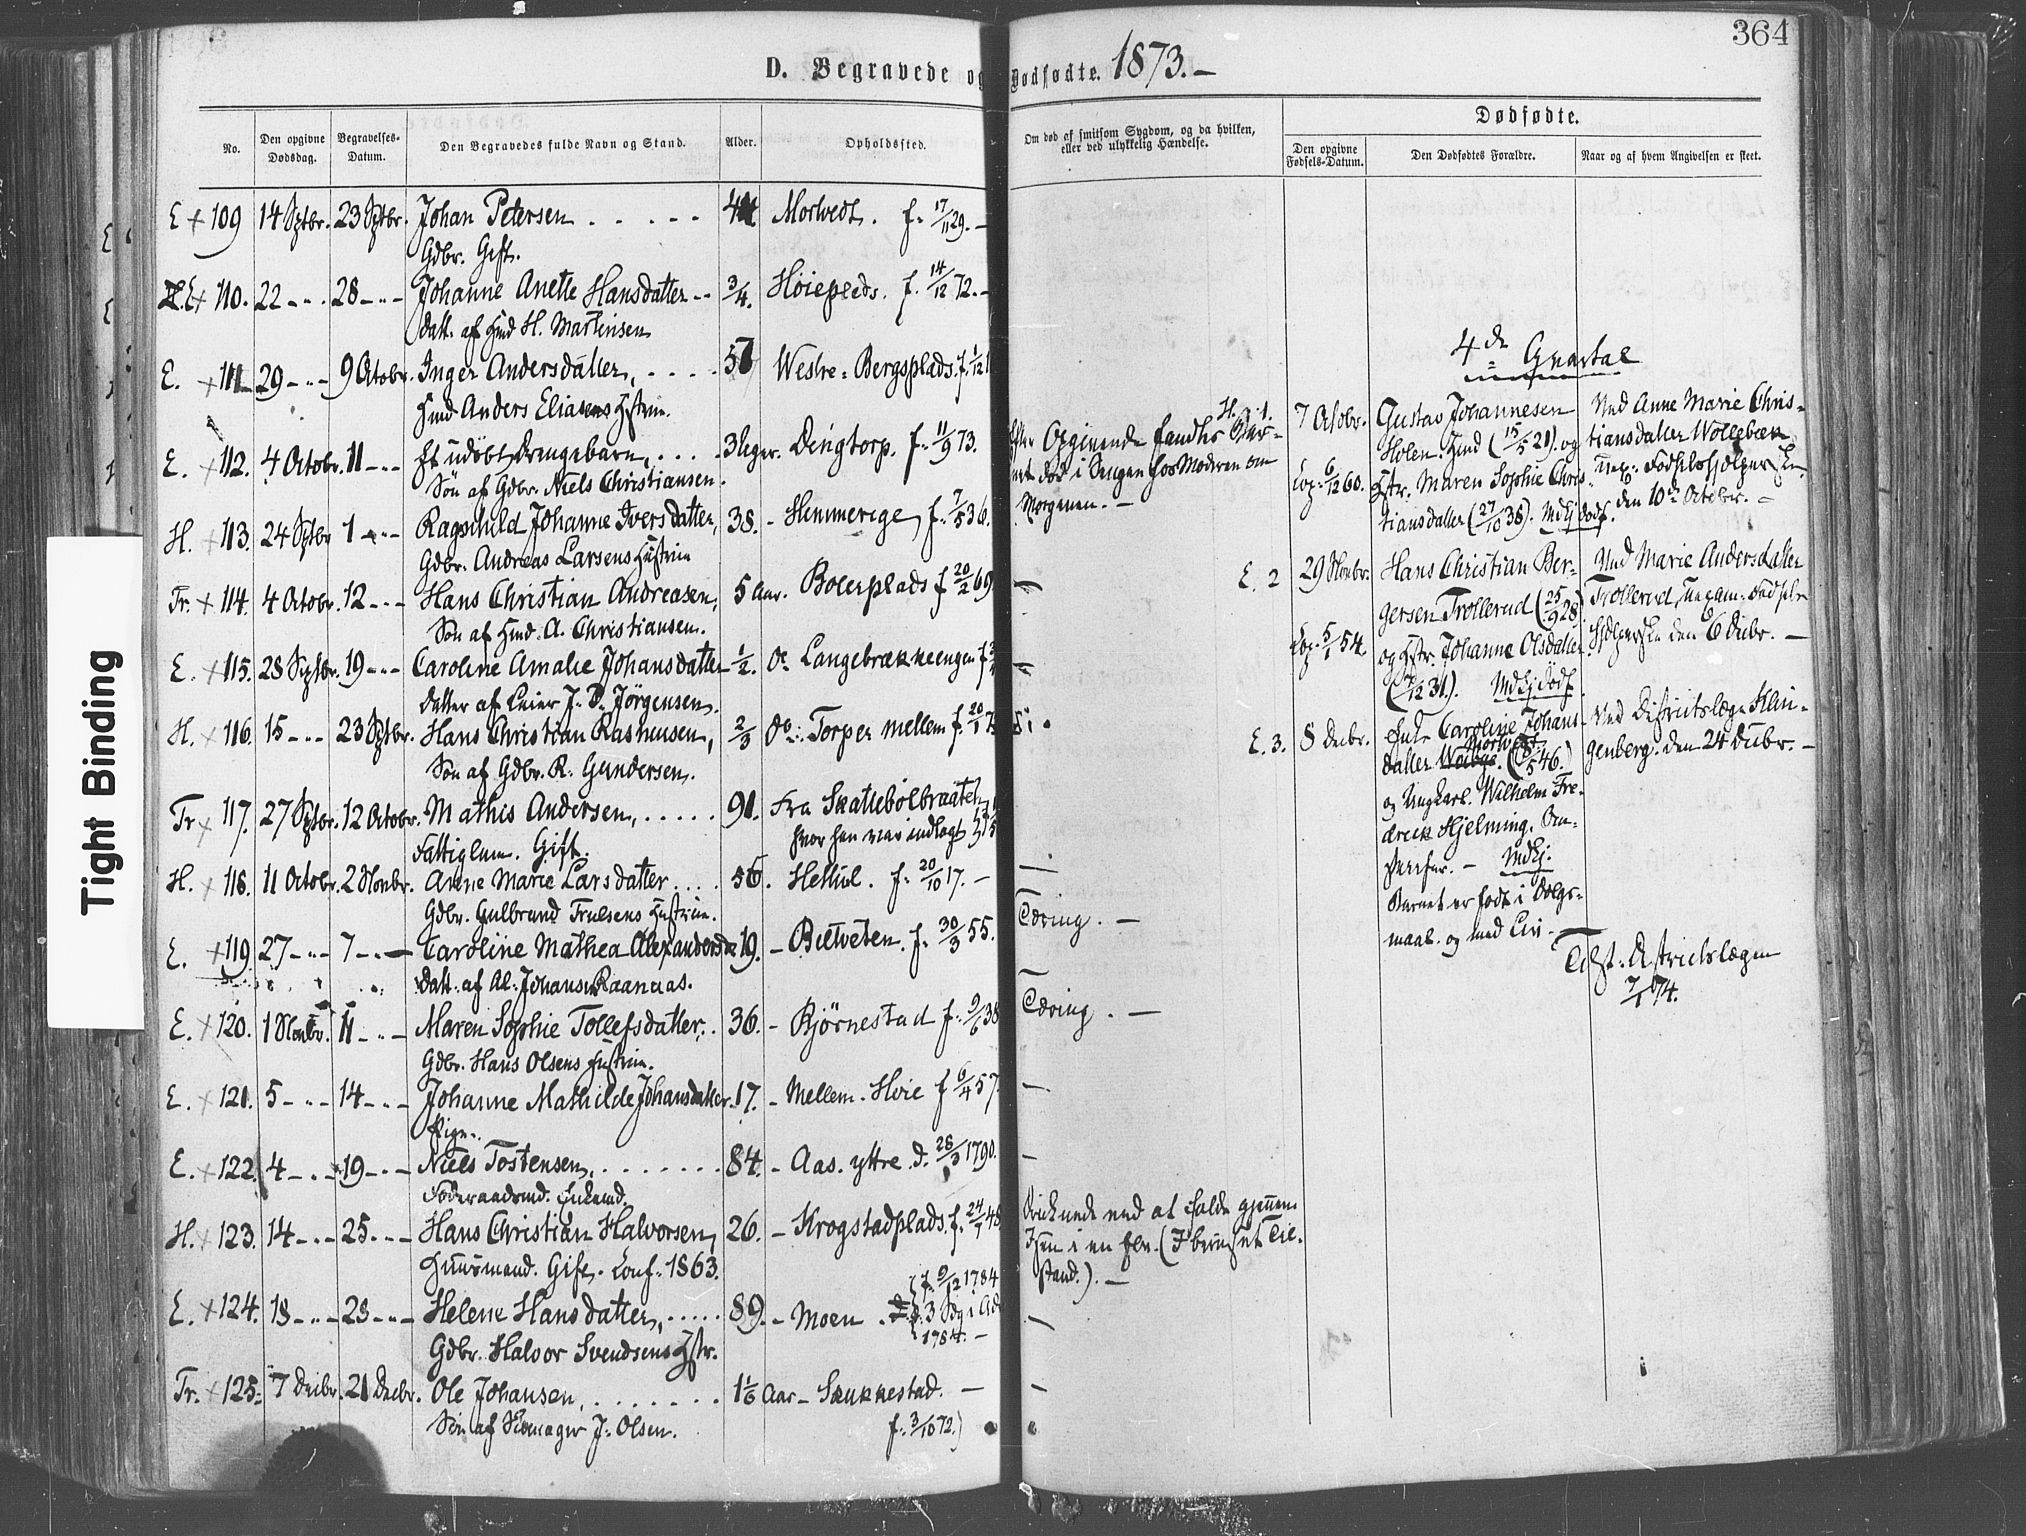 364
D. Begravede og Dødfødte. 1873.
Dødfødte.
No.
Den opgivne Dødsdag.
Begravelses-Datum.
Den Begravedes fulde Navn og Stand.
Alder.
Opholdssted.
Om død af smitsom Sygdom, og da hvilken,
eller ved ulykkelig Hændelse.
Den opgivne Fødsels-Datum.
Den Dødfødtes Forældre.
Naar og af hvem Angivelsen er skeet.
E + 109 14 Sptbr. 23 Sptbr. Johan Petersen 44 Mortvedt. f. 17/11 29. –
Gdbr. Gift.
E + 110. 22 – " – 28 – " – Johanne Anette Hansdatter 3/4. Høiepleds. f. 14/12 72. –
Datt. af Hmd H. Martinsen
E. + 111 29 – " – 9 Octobr. Inger Andersdatter, 57 Westre-Bergsplads. f. 1/12
Hmd Anders Eliasens Hstrin.
E. + 112. 4 Octobr. 11 – " – Et udøbt Drengebarn, 3 Uger. Dengtorp. f. 11/9 73.
Søn af Gdbr. Niels Christiansen.
H. + 113. 24 Sptbr 1 – " – Ragnhild Johanne Iversdatter, 38. – Hemmerige, f. 7/5 36.
Gdbr. Andreas Larsens Hustrin
Tr. + 114. 4 Octobr. 12 – " – Hans Christian Andreasen, 5 Aar. Bolerplads f. 20/2 69 –
Søn af Hmd. A. Christiansen.
E. + 115. 28 Sptbr. 19 – " – Caroline Amalie Johansdatter 1/2. Langebrækkeengen f. –
Datter af Leier J. D. Jörgensen.
H. + 116. 15 – " 23 Sptbr. Hans Christian Rasmussen, 2/3 Do: Torper mellem f. 20/1 73
Søn af Gdbr. R. Gundersen.
Tr + 117. 27 Sptbr. 12 Octobr. Mathis Andersen, 91. Fra Skatiebølbraaten
Fattiglem. Gift. hvor han var indlagt
H. + 118. 11 Octobr. 2 Novbr. Anne Marie Larsdatter 56. Hettul. f. 20/10 17. –
Gdbr. Gulbrand Trulsens Hustrin.
E. + 119. 27 – " – 7 – " – Caroline Mathea Alexandersd. 19. – Butveten. f. 30/3 55. Tæring. –
Datt. af Al. Johansen Raanaas.
E. + 120. 1 Novbr. 11 – " – Maren Sophie Tollefsdatter, 36. – Bjørnestad f. 9/6 38 Tæring. –
Gdbr. Hans Olsens Hustrin.
E. + 121. 5 – " – 14 – " – Johanne Mathilde Johansdatter. 17. – Mellem-Høie f. 6/4 57. –
Pige.
E. + 122. 4 – " – 19 – " – Niels Tostensen, 84. – Aas. yttre. d. 28/3 1790. –
Föderaadsmd. Enkemd.
H. + 123. 14 – " – 25 – " – Hans Christian Halvorsen, 26. – Krogstadplads. f. 24/1 48
Huusmand. Gift. Conf. 1863.
E. + 124. 18 – " – 28 – " – Helene Hansdatter, 89. – Moen. f. 9/12 1784
Gdbr. Halvor Svendsens Hstr. 3 Sdg i Adv 1784. –
Tr. + 125. 7 Decbr. 21 Decbr. Ole Johansen, 1 1/6 Aar – Saukkestad. –
Søn af Skomager J. Olsen. f. 3/10 72.)
Efter Opgivende fandtes Bar-
net död i Sengen hos Moderen om
Morgenen. –
Druknede ved at falde gjennem
Isen i en Elv. (I beruset Til-
stand.). –
4de Qvartal
H. 1. 7 Octobr. Gustav Johannesen
Holen. Hmd (15/5 21). og
Cop. 6/12 60. Hstr. Maren Sophie Chris-
tiansdatter (27/10 38). Mdkj dödf.
Ved Anne Marie Chris-
tiansdatter Wollebæk
uex: Födselshjelperske
den 10de Octobr. –
E. 2 29 Novbr. Hans Christian Ber-
gersen Trollerud (25/9 28)
Cop. 5/1 54. og Hstr. Johanne Olsdatter
(/12 31.). Mdkj dödf.
Ved Marie Andersdatter
Trollerud, uexam: Födsels
hjelperske den 6 Decbr. –
E. 3. 8 Decbr. Enke Caroline Johans-
datter Mortvedt. (/5 46.)
og Ungkarl. Wilhelm Fre-
derik Hjelming.
Mdkj.
Barnet er födt i Dölgs-
maal. og med Liv. –
Ved Districtslæge Klin-
genberg. den 24 Decbr. –
Tilst. Districtslægen
7/1 74.
Tight Binding